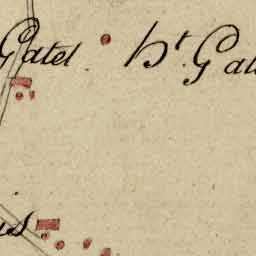 Gatel
ht. Gat
us